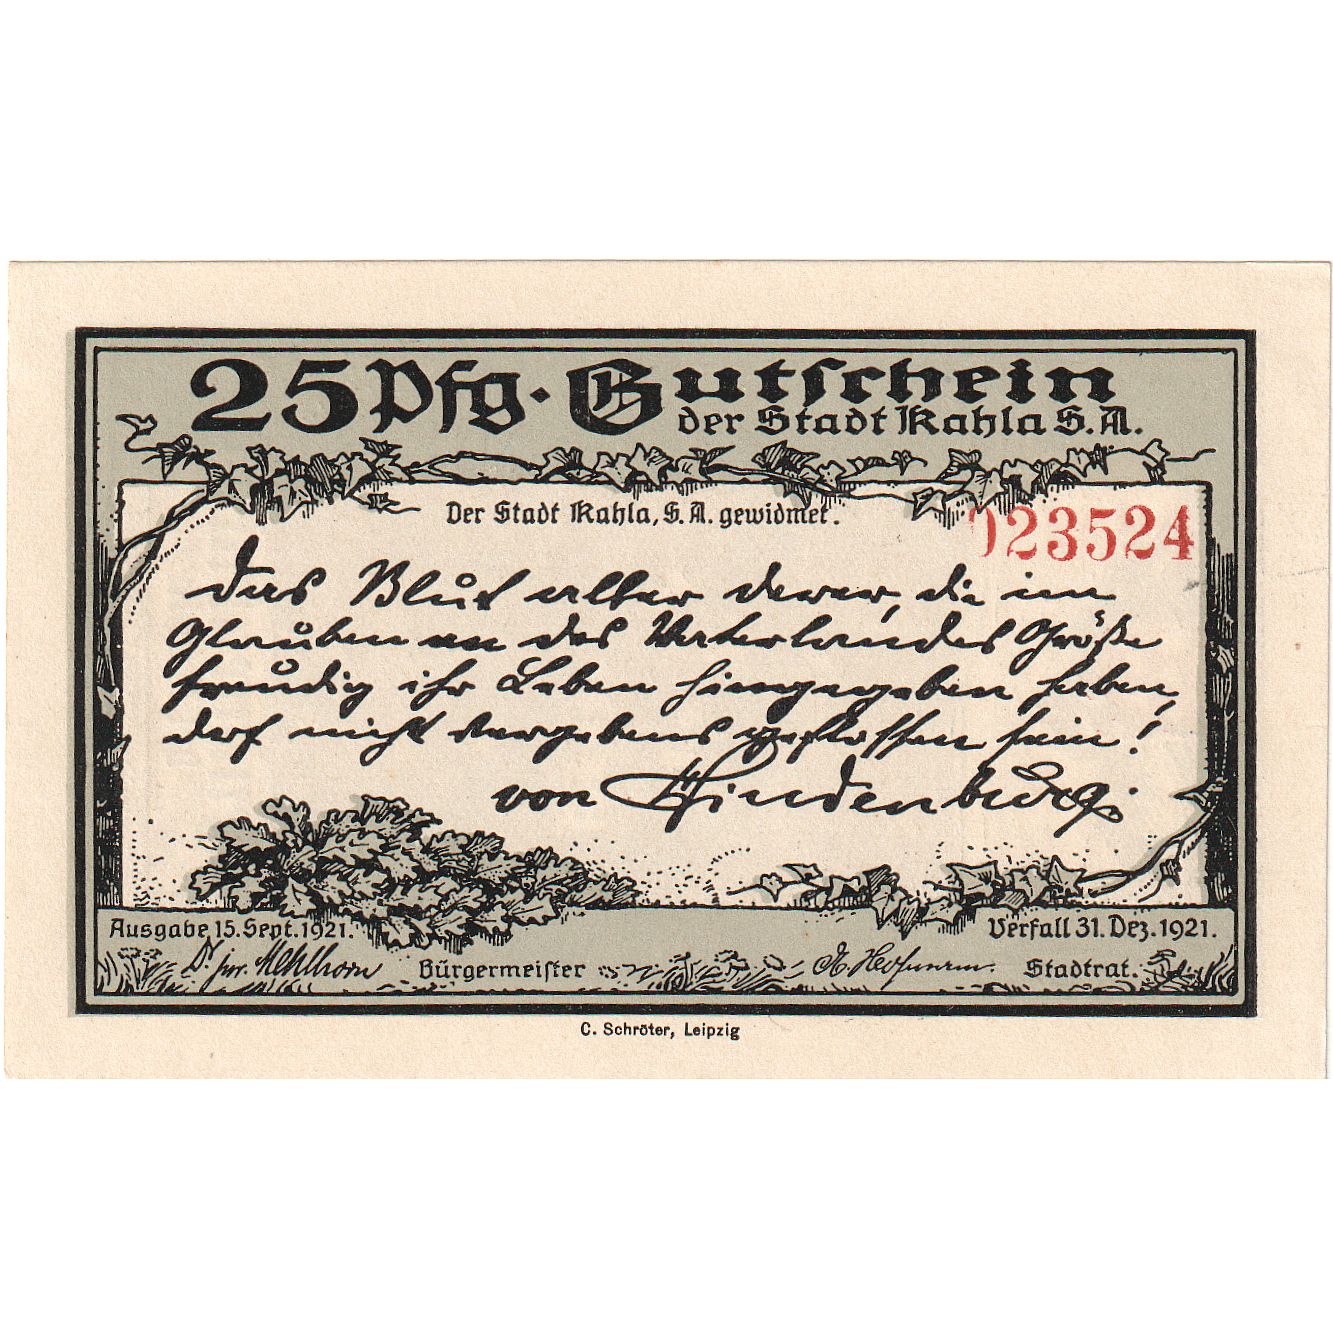 25 Pfg. Gutschein
der Stadt Kahla S.A.
Der Stadt Kahla, S.A. gewidmet.
023524
Das Blut aller derer, die im
Glauben an des Vaterlandes Größe
freudig ihr Leben hingegeben haben,
darf nicht vergebens geflossen sein!
von Hindenburg.
Ausgabe 15. Sept. 1921.
Verfall 31. Dez. 1921.
Dr. jur. Mehlhorn Bürgermeister
Stadtrat.
C. Schröter, Leipzig